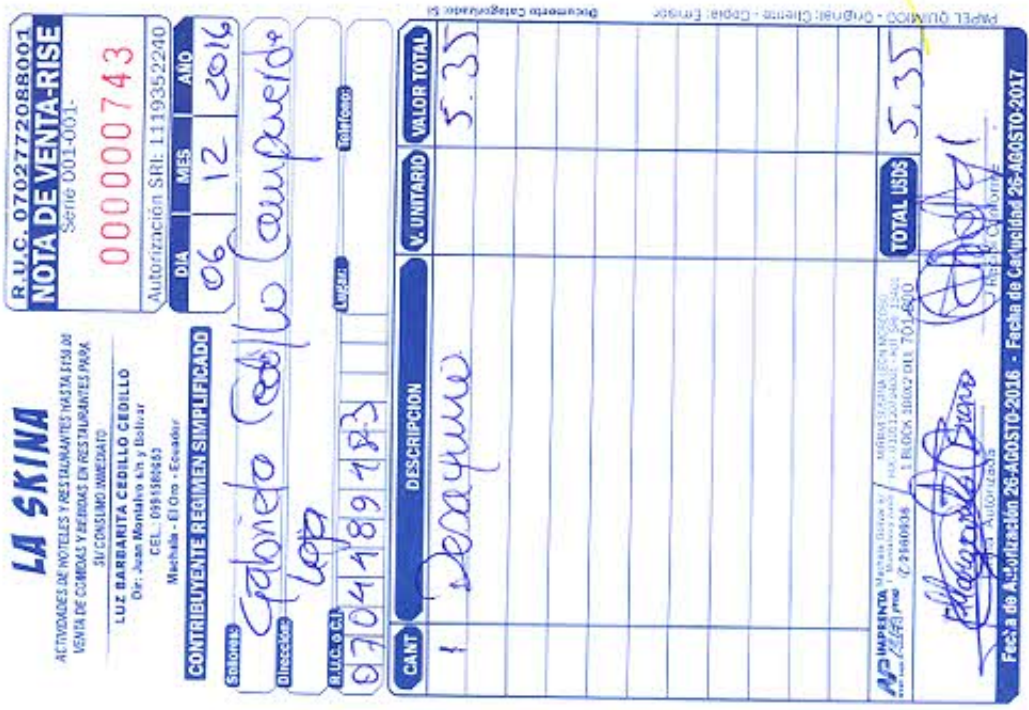 LA SKINA
ACTIVIDADES DE HOTELES Y RESTAURANTES HASTA $150.00
VENTA DE COMIDAS Y BEBIDAS EN RESTAURANTES PARA
SU CONSUMO INMEDIATO
LUZ BARBARITA CEDILLO CEDILLO
Dir: Juan Montalvo s/n y Bolivar
CEL.: 0991580653
Machala - El Oro - Ecuador
CONTRIBUYENTE REGIMEN SIMPLIFICADO
R.U.C. 0702772088001
NOTA DE VENTA-RISE
Serie 001-001-
000000743
Autorización SRI: 1119352240
DIA MES AÑO
06 12 2016
Señores: Gabriela Cedillo Campuverde
Dirección: Loja Lugar: Teléfono:
R.U.C. o C.I.
CANT DESCRIPCION V. UNITARIO VALOR TOTAL
1 Desayuno 5.35
IMPRENTA
1 BLOCK 100X2 DEL 701-800
TOTAL USD$ 5.35
Autorizada
Recibí Conforme
Fecha de Autorización 26-AGOSTO-2016 - Fecha de Caducidad 26-AGOSTO-2017
PAPEL QUIMICO - Original: Cliente - Copia: Emisor
Documento Categorizado: Si